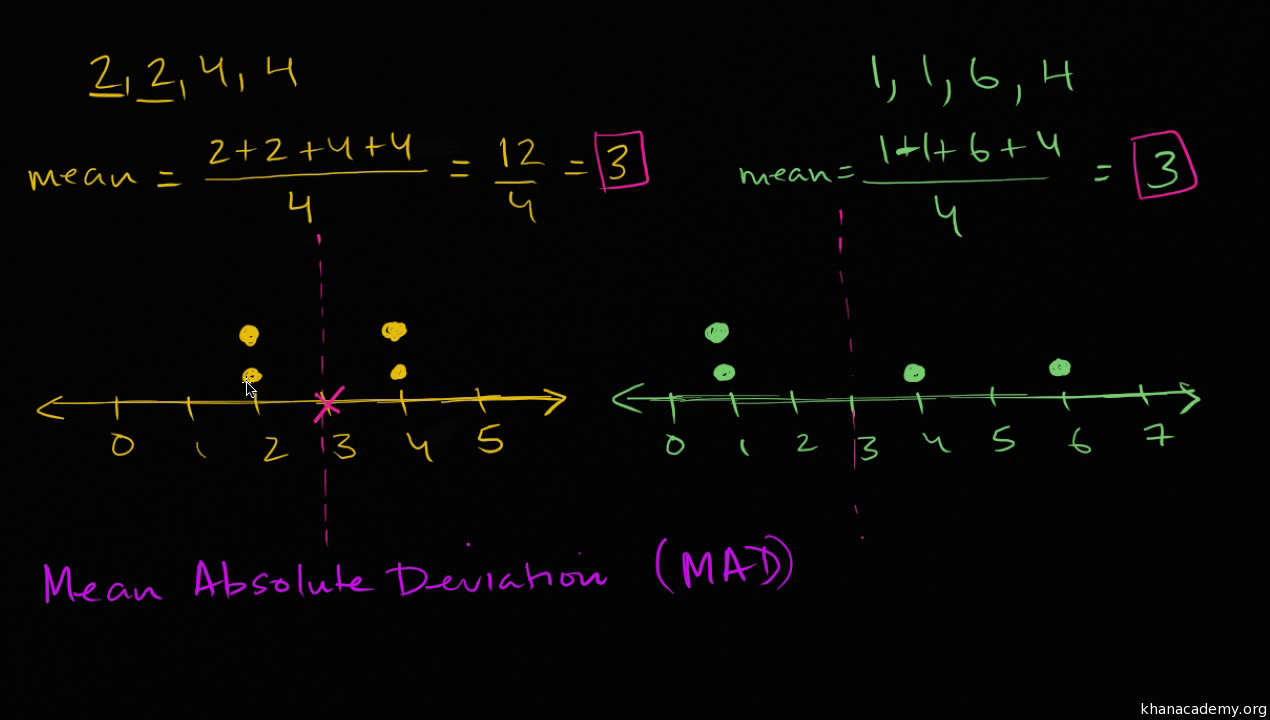 2, 2, 4, 4
mean = 2+2+4+4 / 4 = 12 / 4 = 3
0 1 2 3 4 5
1, 1, 6, 4
mean = 1+1+6+4 / 4 = 3
0 1 2 3 4 5 6 7
Mean Absolute Deviation (MAD)
khanacademy.org